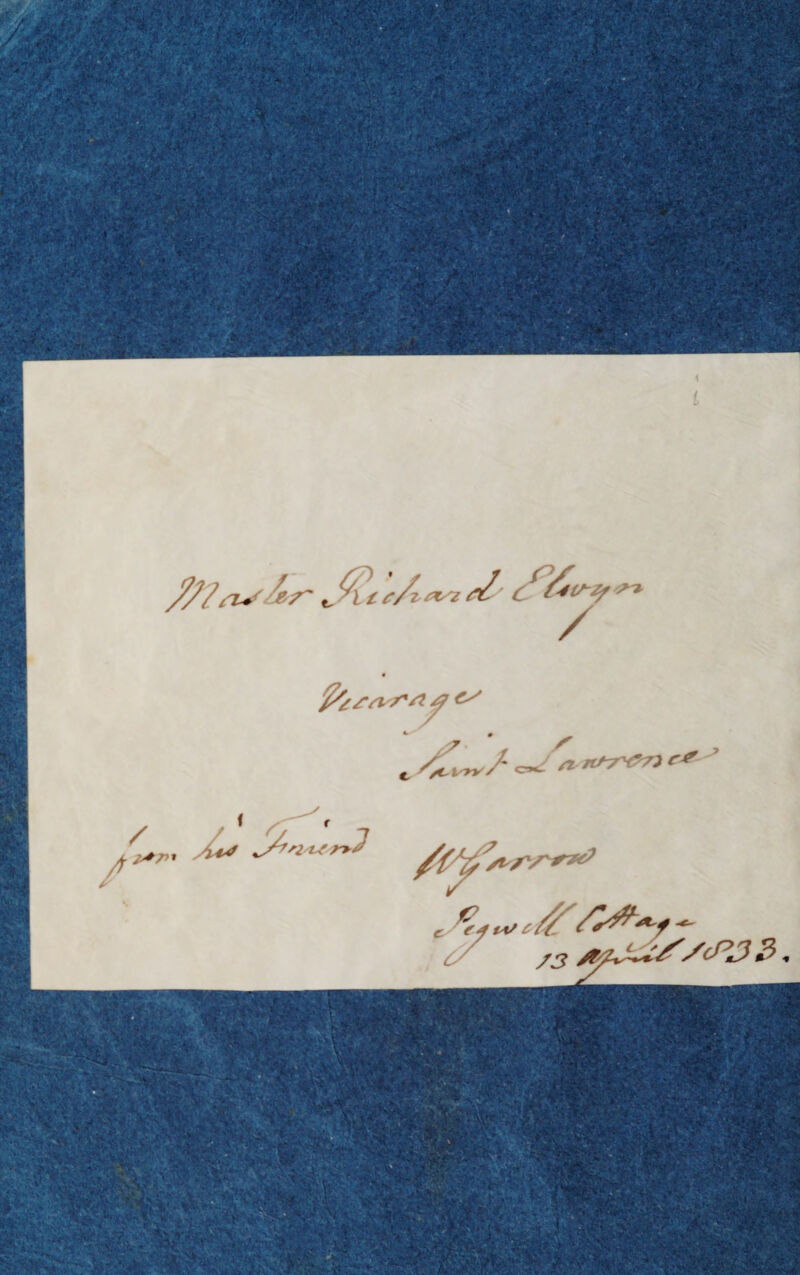 Master Richard Elwyn
Vicarage
Saint Lawrence
from his Friend WGarrow
Pegwell Cottage
13 April 1833.